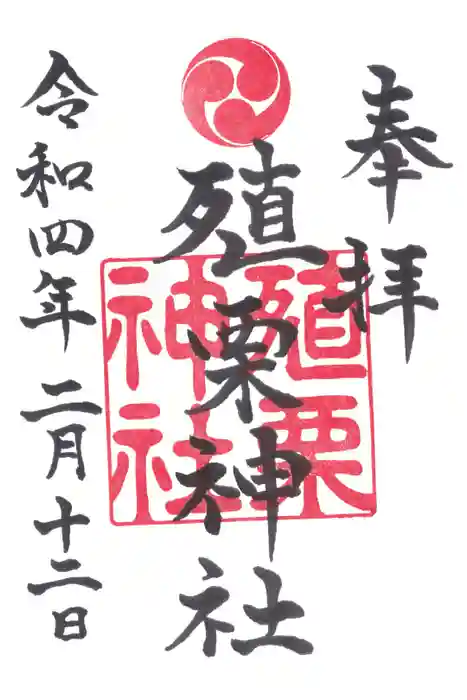 奉拝
殖栗神社
殖栗神社
令和四年二月十二日